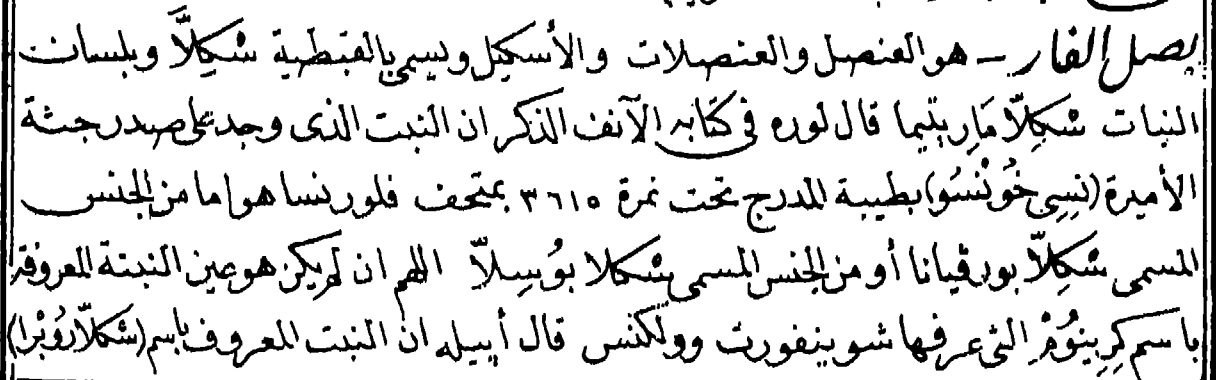 بصل الفار — هو العنصل والعنصلات والأسكيل ويسمى بالقبطية شكِلاَّ وبلسان
النبات شكِلاَّ مَاريتيما قال لوره فى كتابه الآنف الذكر ان النبت الذى وجد على صدر جثة
الأميرة (نِسِى خُونْسُو) بطيبة المدرج تحت نمرة ٣٦١٥ بمتحف فلورنسا هو اما من الجنس
المسمى شكِلاَّ بورڤيانا أو من الجنس المسمى شكلا بوُسِلاَّ اللهم ان لم يكن هو عين النبتة المعروفة
باسم كرِينُومْ التى عرفها شوينفورت وولكنس قال أبيله ان النبت المعروف باسم (شكلاَّ رُوُبْرا)